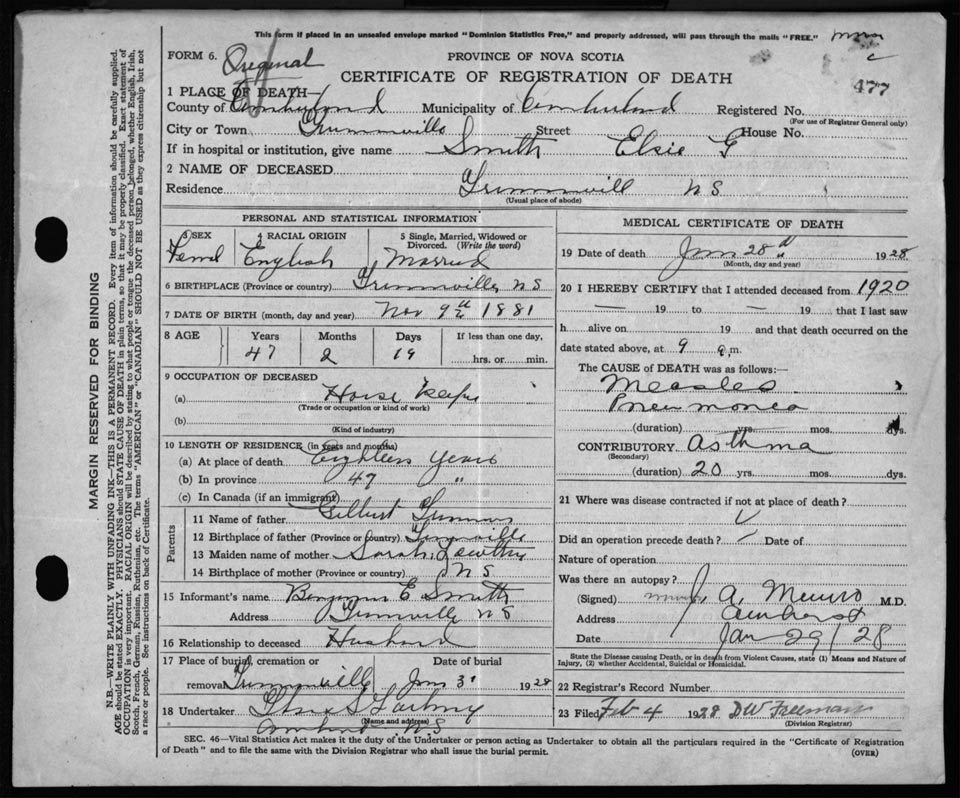 This form if placed in an unsealed envelope marked "Dominion Statistics Free," and properly addressed, will pass through the mails "FREE."
FORM 6. Original
PROVINCE OF NOVA SCOTIA
CERTIFICATE OF REGISTRATION OF DEATH
477
1 PLACE OF DEATH—
County of Cumberland Municipality of Cumberland Registered No.
(For use of Registrar General only)
City or Town Street House No.
If in hospital or institution, give name Smith Elsie G
2 NAME OF DECEASED
Residence N S
(Usual place of abode)
PERSONAL AND STATISTICAL INFORMATION
3 SEX 4 RACIAL ORIGIN 5 Single, Married, Widowed or Divorced. (Write the word)
English Married
6 BIRTHPLACE (Province or country) N S
7 DATE OF BIRTH (month, day and year) Nov 9th 1881
8 AGE Years Months Days If less than one day,
47 2 19 hrs. or min.
9 OCCUPATION OF DECEASED
(a) House Keeper
(Trade or occupation or kind of work)
(b)
(Kind of industry)
10 LENGTH OF RESIDENCE (in years and months)
(a) At place of death Eighteen years
(b) In province 47 "
(c) In Canada (if an immigrant)
Parents
11 Name of father Gilbert
12 Birthplace of father (Province or country)
13 Maiden name of mother Sarah
14 Birthplace of mother (Province or country) N S
15 Informant's name Benjamin E Smith
Address N S
16 Relationship to deceased Husband
17 Place of burial, cremation or Date of burial
removal Jan 31 1928
18 Undertaker
(Name and address)
Amherst N.S
MEDICAL CERTIFICATE OF DEATH
19 Date of death Jan 28 1928
(Month, day and year)
20 I HEREBY CERTIFY that I attended deceased from 1920
— 19 to — 19 that I last saw
h alive on 19 and that death occurred on the
date stated above, at 9 m.
The CAUSE of DEATH was as follows:—
Measles
Pneumonia
(duration) yrs. mos. dys.
CONTRIBUTORY Asthma
(Secondary)
(duration) 20 yrs. mos. dys.
21 Where was disease contracted if not at place of death?
Did an operation precede death? Date of
Nature of operation
Was there an autopsy?
(Signed) J. A. Munro M.D.
Address Amherst
Date Jan 29/28
State the Disease causing Death, or in death from Violent Causes, state (1) Means and Nature of Injury, (2) whether Accidental, Suicidal or Homicidal.
22 Registrar's Record Number
23 Filed Feb 4 1928 D W Freeman
(Division Registrar)
SEC. 46—Vital Statistics Act makes it the duty of the Undertaker or person acting as Undertaker to obtain all the particulars required in the "Certificate of Registration
of Death" and to file the same with the Division Registrar who shall issue the burial permit. (OVER)
MARGIN RESERVED FOR BINDING
N.B.—WRITE PLAINLY WITH UNFADING INK—THIS IS A PERMANENT RECORD. Every item of information should be carefully supplied.
AGE should be stated EXACTLY. PHYSICIANS should STATE CAUSE OF DEATH in plain terms, so that it may be properly classified. Exact statement of
OCCUPATION is very important. RACIAL ORIGIN will be described by stating to what people or tongue the deceased person belonged, whether English, Irish,
Scotch, French, German, Russian, Ruthenian, etc. The terms "AMERICAN" or "CANADIAN" SHOULD NOT BE USED as they express citizenship but not
a race or people. See instructions on back of Certificate.